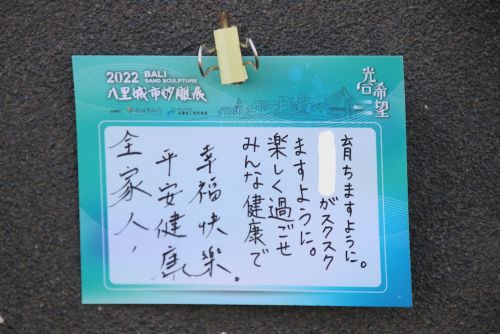 2022 BALI
SAND SCULPTURE
八里城市沙雕展
光合希望
全家人,
平安健康
幸福快樂。
みんな健康で
楽しく過ごせ
ますように。
がスクスク
育ちますように。